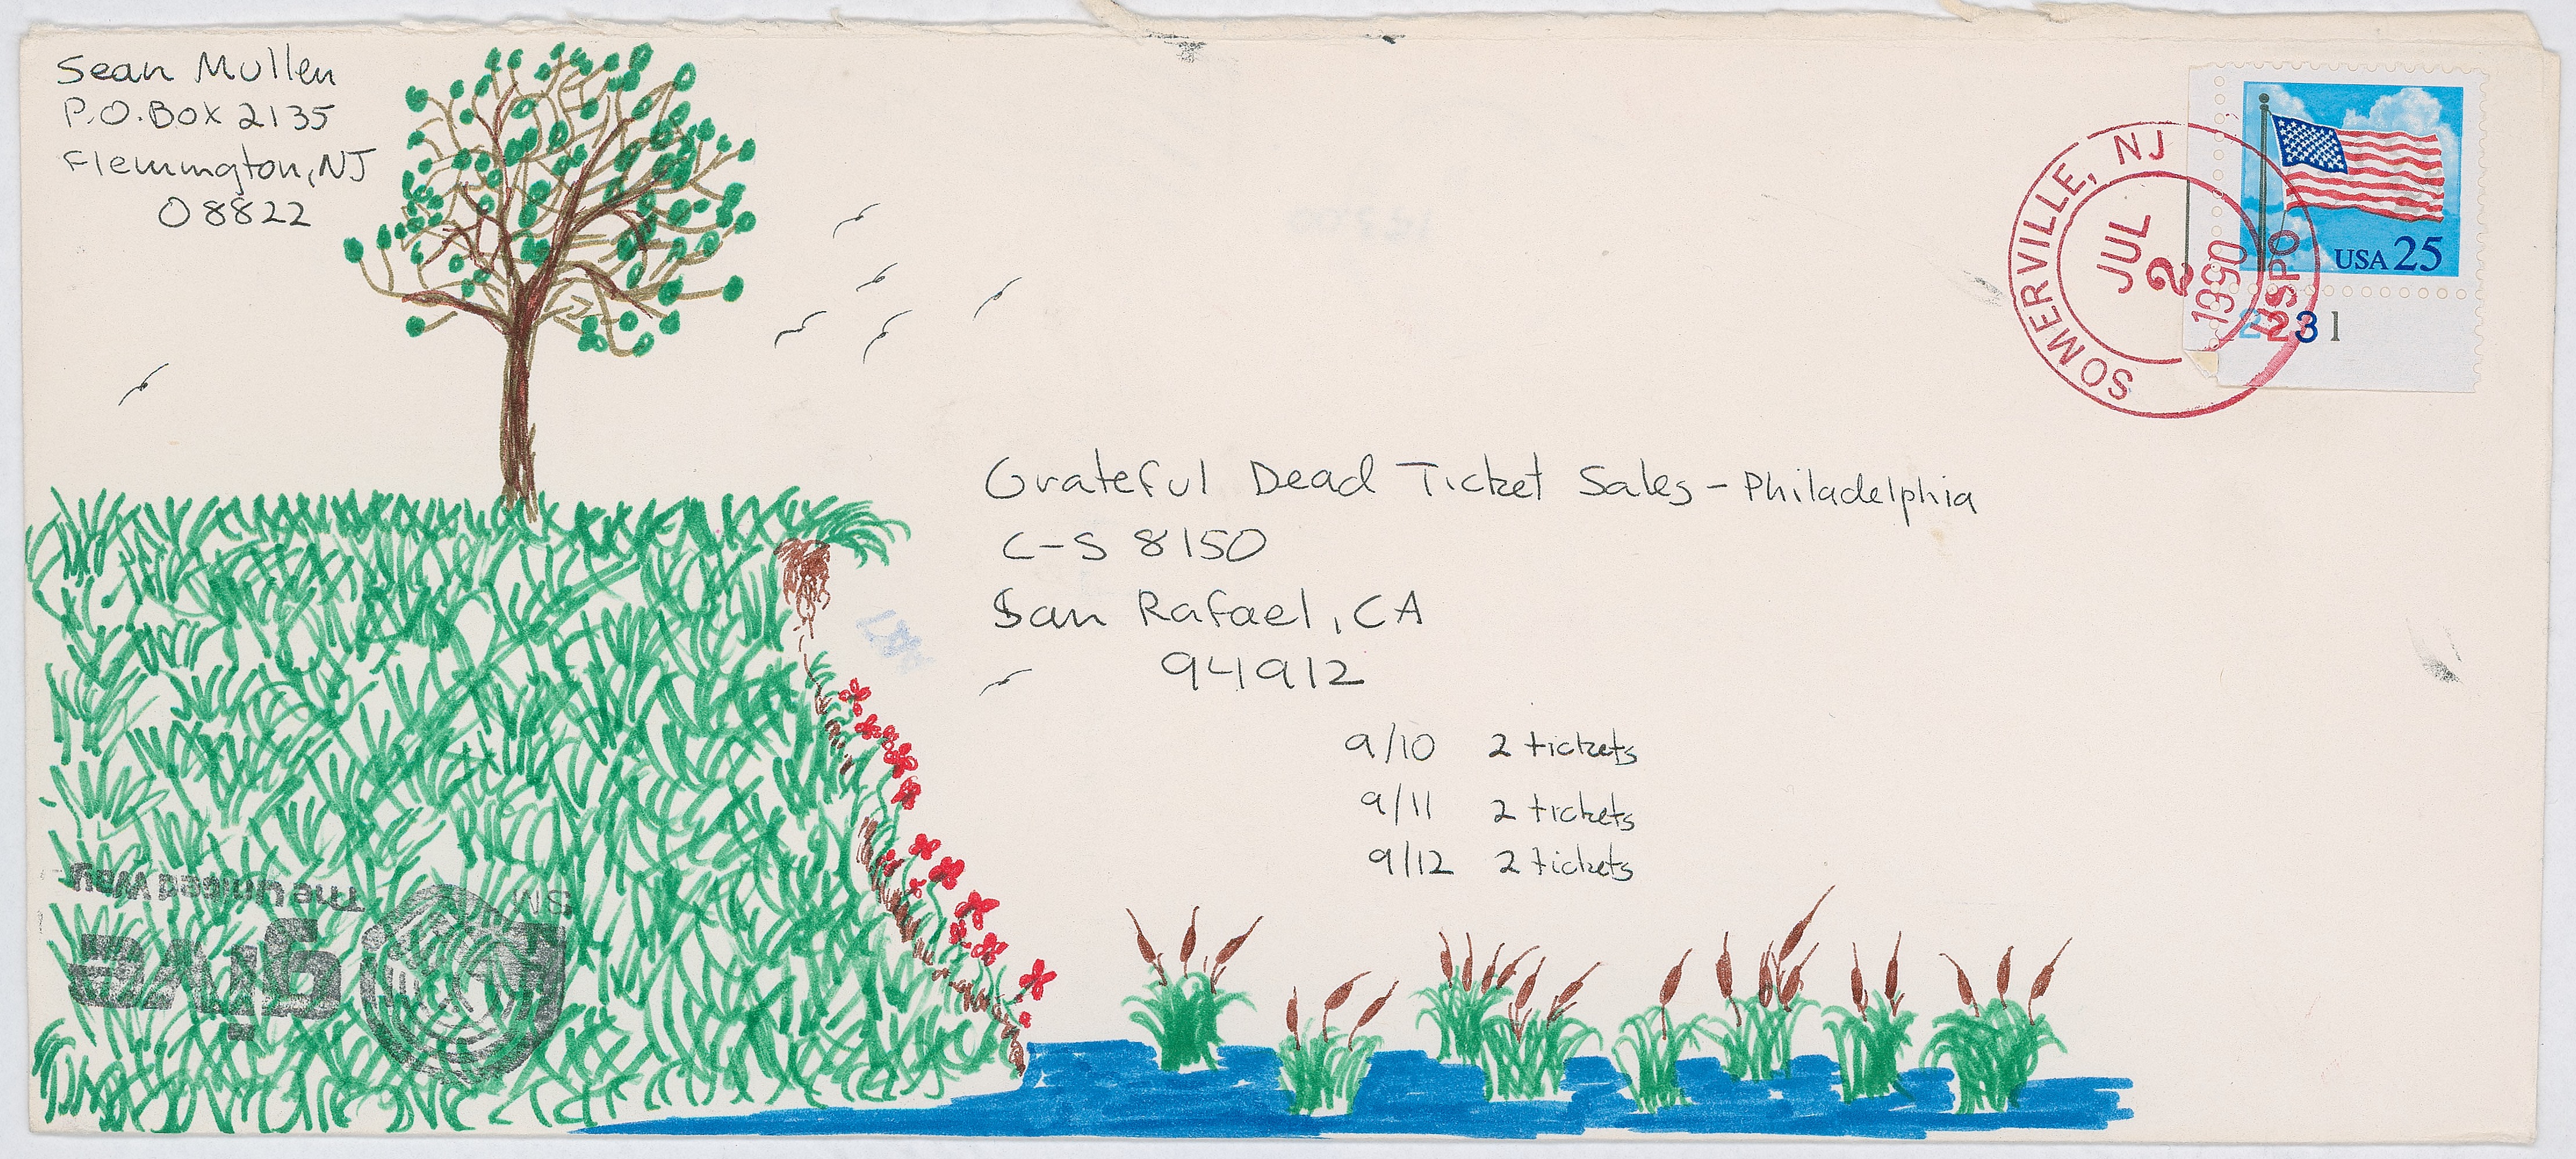 Sean Mullen
P.O. Box 2135
Flemington, NJ
08822
SOMERVILLE, NJ
JUL
2
1990
USPO
USA 25
2231
Grateful Dead Ticket Sales - Philadelphia
C-S 8150
San Rafael, CA
94912
9/10 2 tickets
9/11 2 tickets
9/12 2 tickets
SM
Give
The United Way